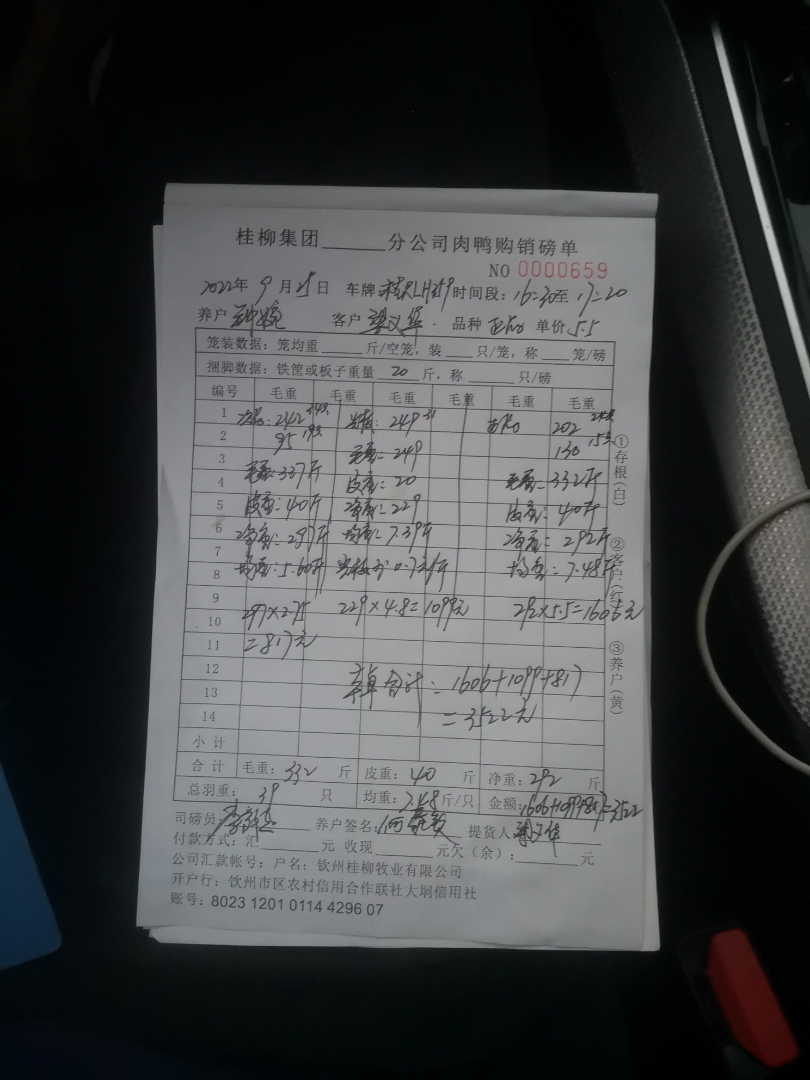 桂柳集团______分公司肉鸭购销磅单
NO 0000659
2022年 9 月 25 日 车牌: 时间段: 16:30至 17:20
养户 客户 梁文华 品种 单价 5.5
笼装数据: 笼均重 ______ 斤/空笼, 装 ___ 只/笼, 称 ___ 笼/磅
捆脚数据: 铁筐或板子重量 20 斤, 称 ______ 只/磅
编号 毛重 毛重 毛重 毛重 毛重 毛重
1 242 249 31 202
2 95 130
3 毛重: 337斤 毛重: 249
4 皮重: 20 毛重: 332斤
5 皮重: 40斤 净重: 229 皮重: 40斤
6 净重: 297斤 均重: 7.39斤 净重: 292斤
7
8 均重: 5.60斤 均重: 7.48斤
9
10 297×2.75 229×4.8=1099元 292×5.5=1606元
11 =817元
12 合计: 1606+1099+817
13
14 =3522元
小 计
合 计 毛重: 332 斤 皮重: 40 斤 净重: 292 斤
总羽重: 39 只 均重: 7.48斤/只 金额: 1606+1099+817=3522
司磅员: 养户签名: 提货人:
付款方式: 汇______元 收现______元欠(余): ______元
公司汇款帐号: 户名: 钦州桂柳牧业有限公司
开户行: 钦州市区农村信用合作联社大垌信用社
账号: 8023 1201 0114 4296 07
①存根(白)
②客户(红)
③养户(黄)